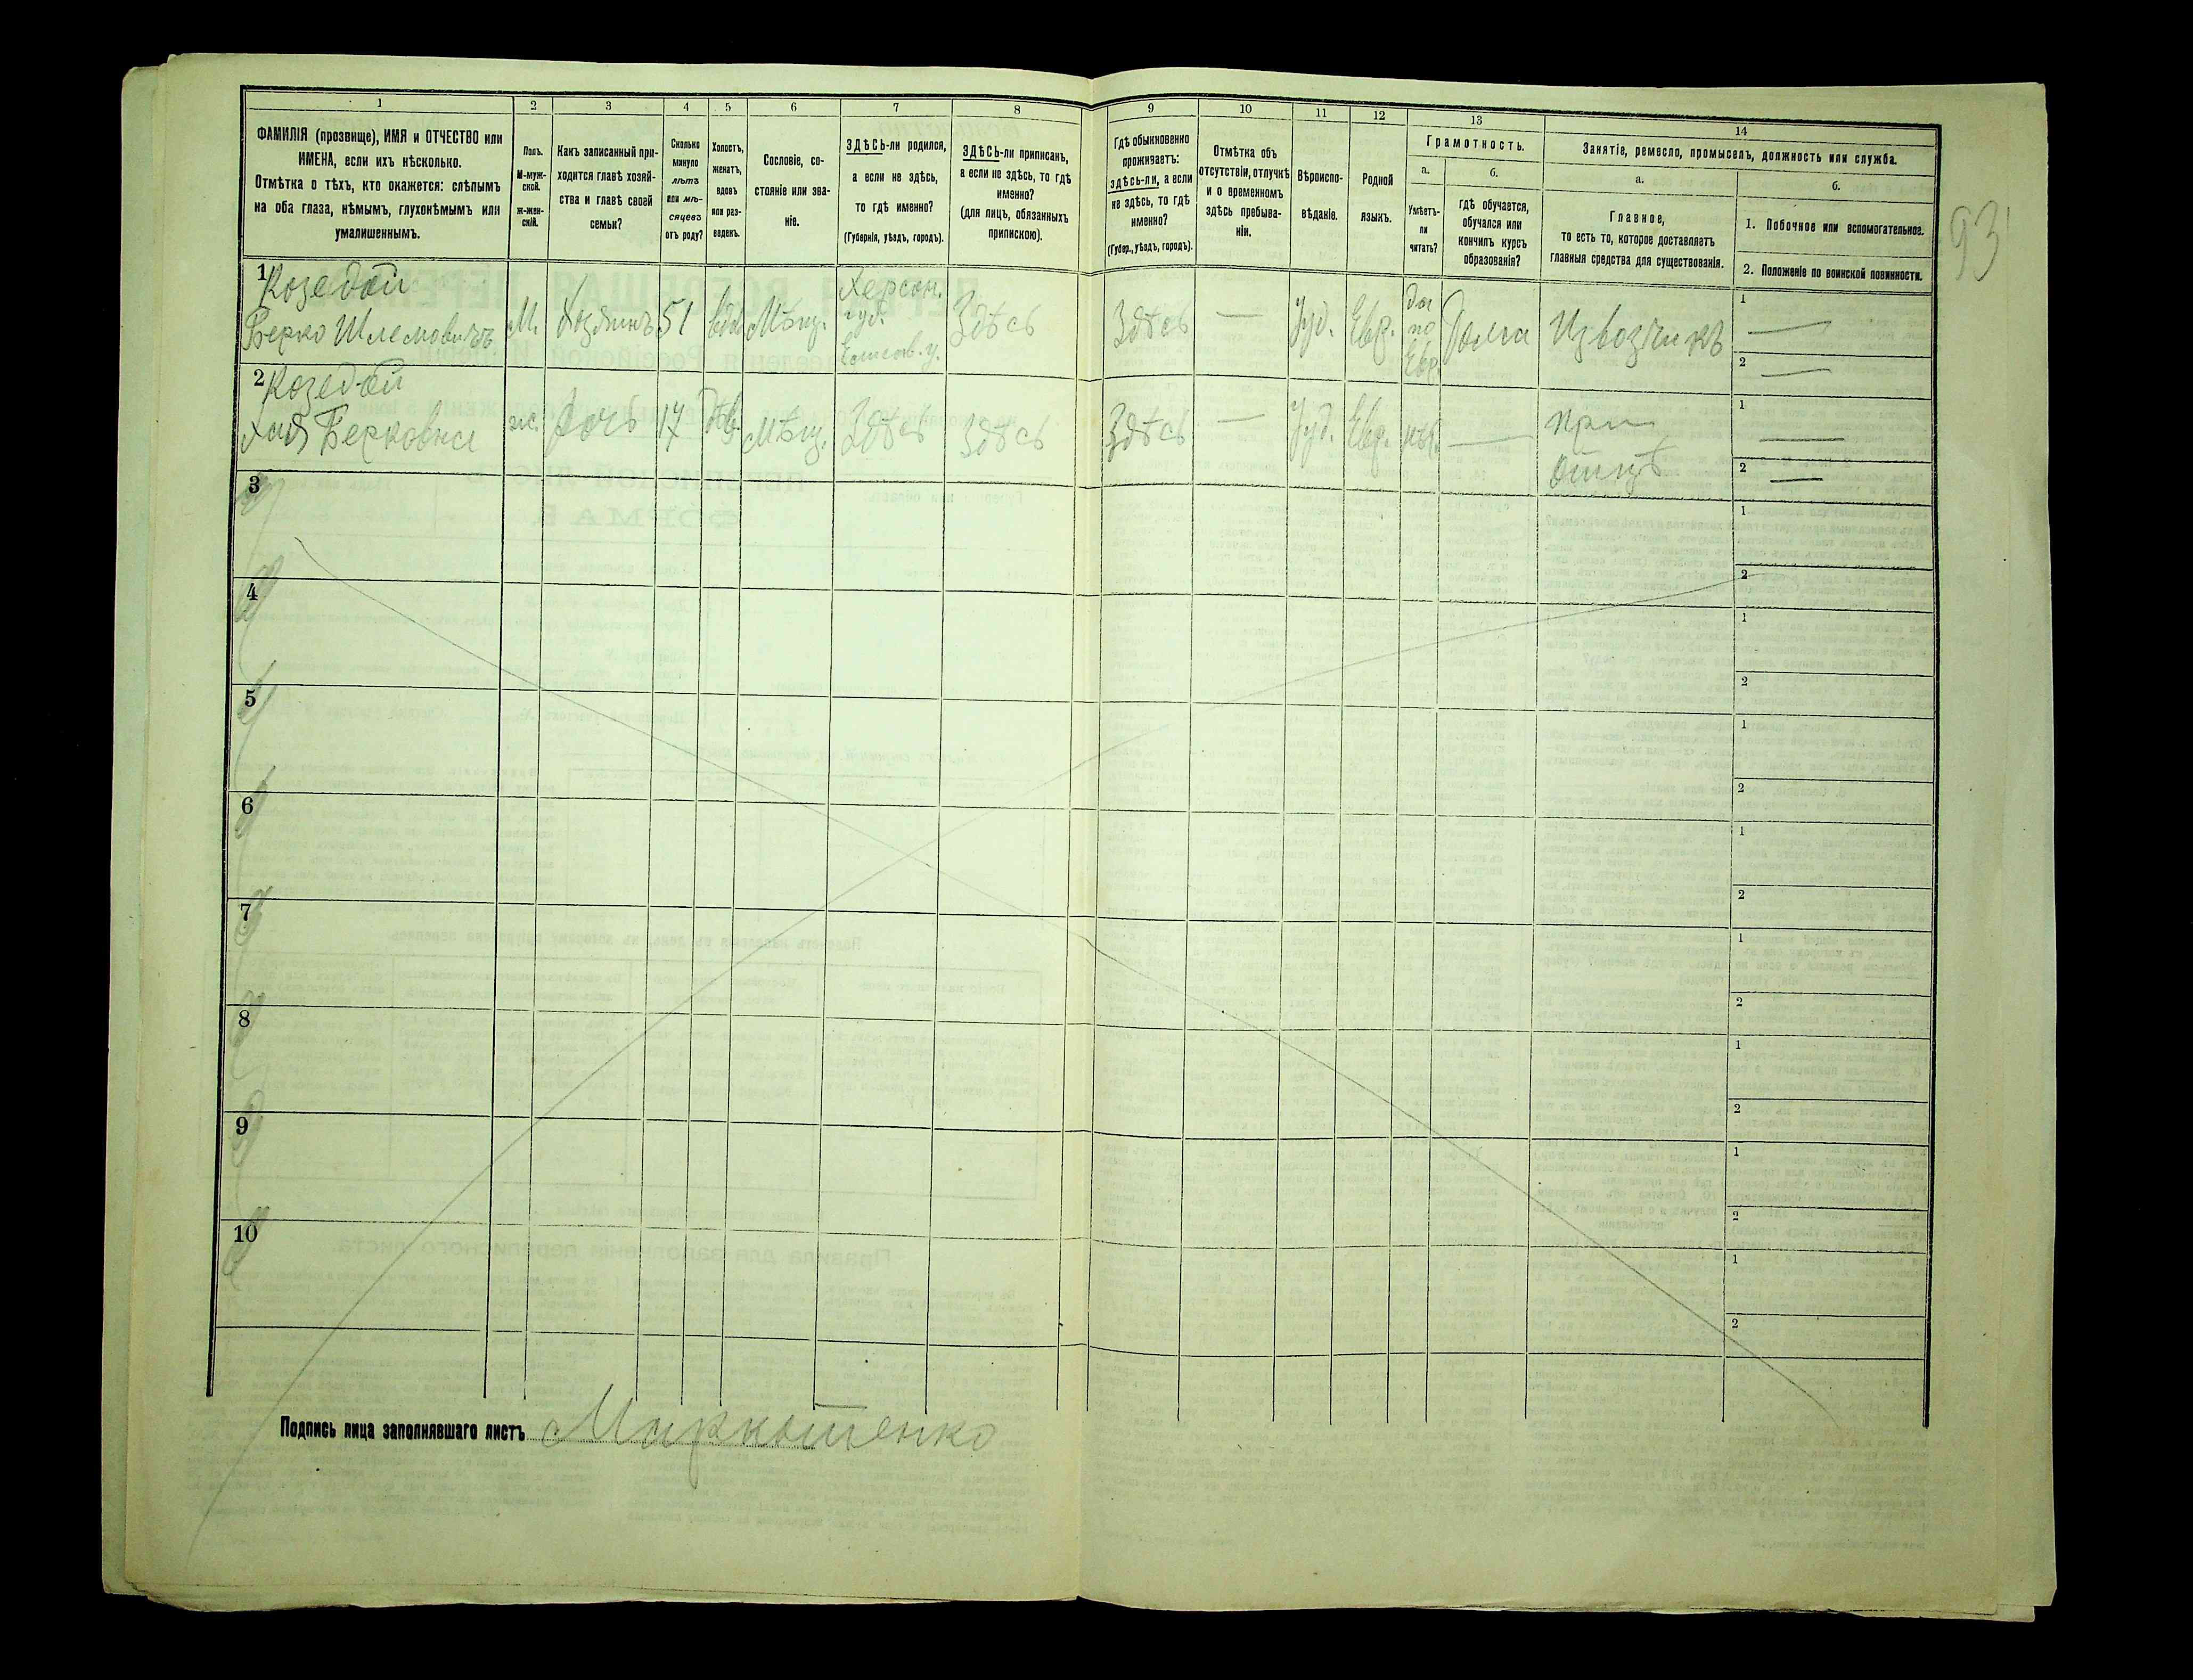 1
2
3
4
5
6
7
8
9
10
11
12
13
14
ФАМИЛІЯ (прозвище), ИМЯ и ОТЧЕСТВО или
ИМЕНА, если ихъ нѣсколько.
Отмѣтка о тѣхъ, кто окажется: слѣпымъ
на оба глаза, нѣмымъ, глухонѣмымъ или
умалишеннымъ.
Полъ.
М-муж-
ской.
Ж-жен-
скій.
Какъ записанный при-
ходится главѣ хозяй-
ства и главѣ своей
семьи?
Сколько
минуло
лѣтъ
или мѣ-
сяцевъ
отъ роду?
Холостъ,
женатъ,
вдовъ
или раз-
веденъ.
Сословіе, со-
стояніе или зва-
ніе.
ЗДѢСЬ-ли родился,
а если не здѣсь,
то гдѣ именно?
(Губернія, уѣздъ, городъ).
ЗДѢСЬ-ли приписанъ,
а если не здѣсь, то гдѣ
именно?
(для лицъ, обязанныхъ
припискою).
Гдѣ обыкновенно
проживаетъ:
здѣсь-ли, а если
не здѣсь, то гдѣ
именно?
(Губер., уѣздъ, городъ).
Отмѣтка объ
отсутствіи, отлучкѣ
и о временномъ
здѣсь пребыва-
ніи.
Вѣроиспо-
вѣданіе.
Родной
языкъ.
Грамотность.
а.
Умѣетъ-
ли
читать?
б.
гдѣ обучается,
обучался или
кончилъ курсъ
образованія?
Занятіе, ремесло, промыселъ, должность или служба.
а.
Главное,
то есть то, которое доставляетъ
главныя средства для существованія.
б.
1. Побочное или вспомогательное.
2. Положеніе по воинской повинности.
93
1
Козедой
Берко Шлемовичъ
М.
Хозяинъ
51
вдв
Мѣщ.
Херсон.
губ.
Елисав. у.
Здѣсь
Здѣсь
—
Іуд.
Евр.
да
по
Евр.
Дома
Извозчикъ
1 —
2 —
2
Козедой
Хая Берковна
ж.
Дочь
17
дѣв.
Мѣщ.
Здѣсь
Здѣсь
Здѣсь
—
Іуд.
Евр.
нѣт
—
при
отцѣ
1 —
2 —
3
1
2
4
1
2
5
1
2
6
1
2
7
1
2
8
1
2
9
1
2
10
1
2
Подпись лица заполнявшаго листъ Маркотенко